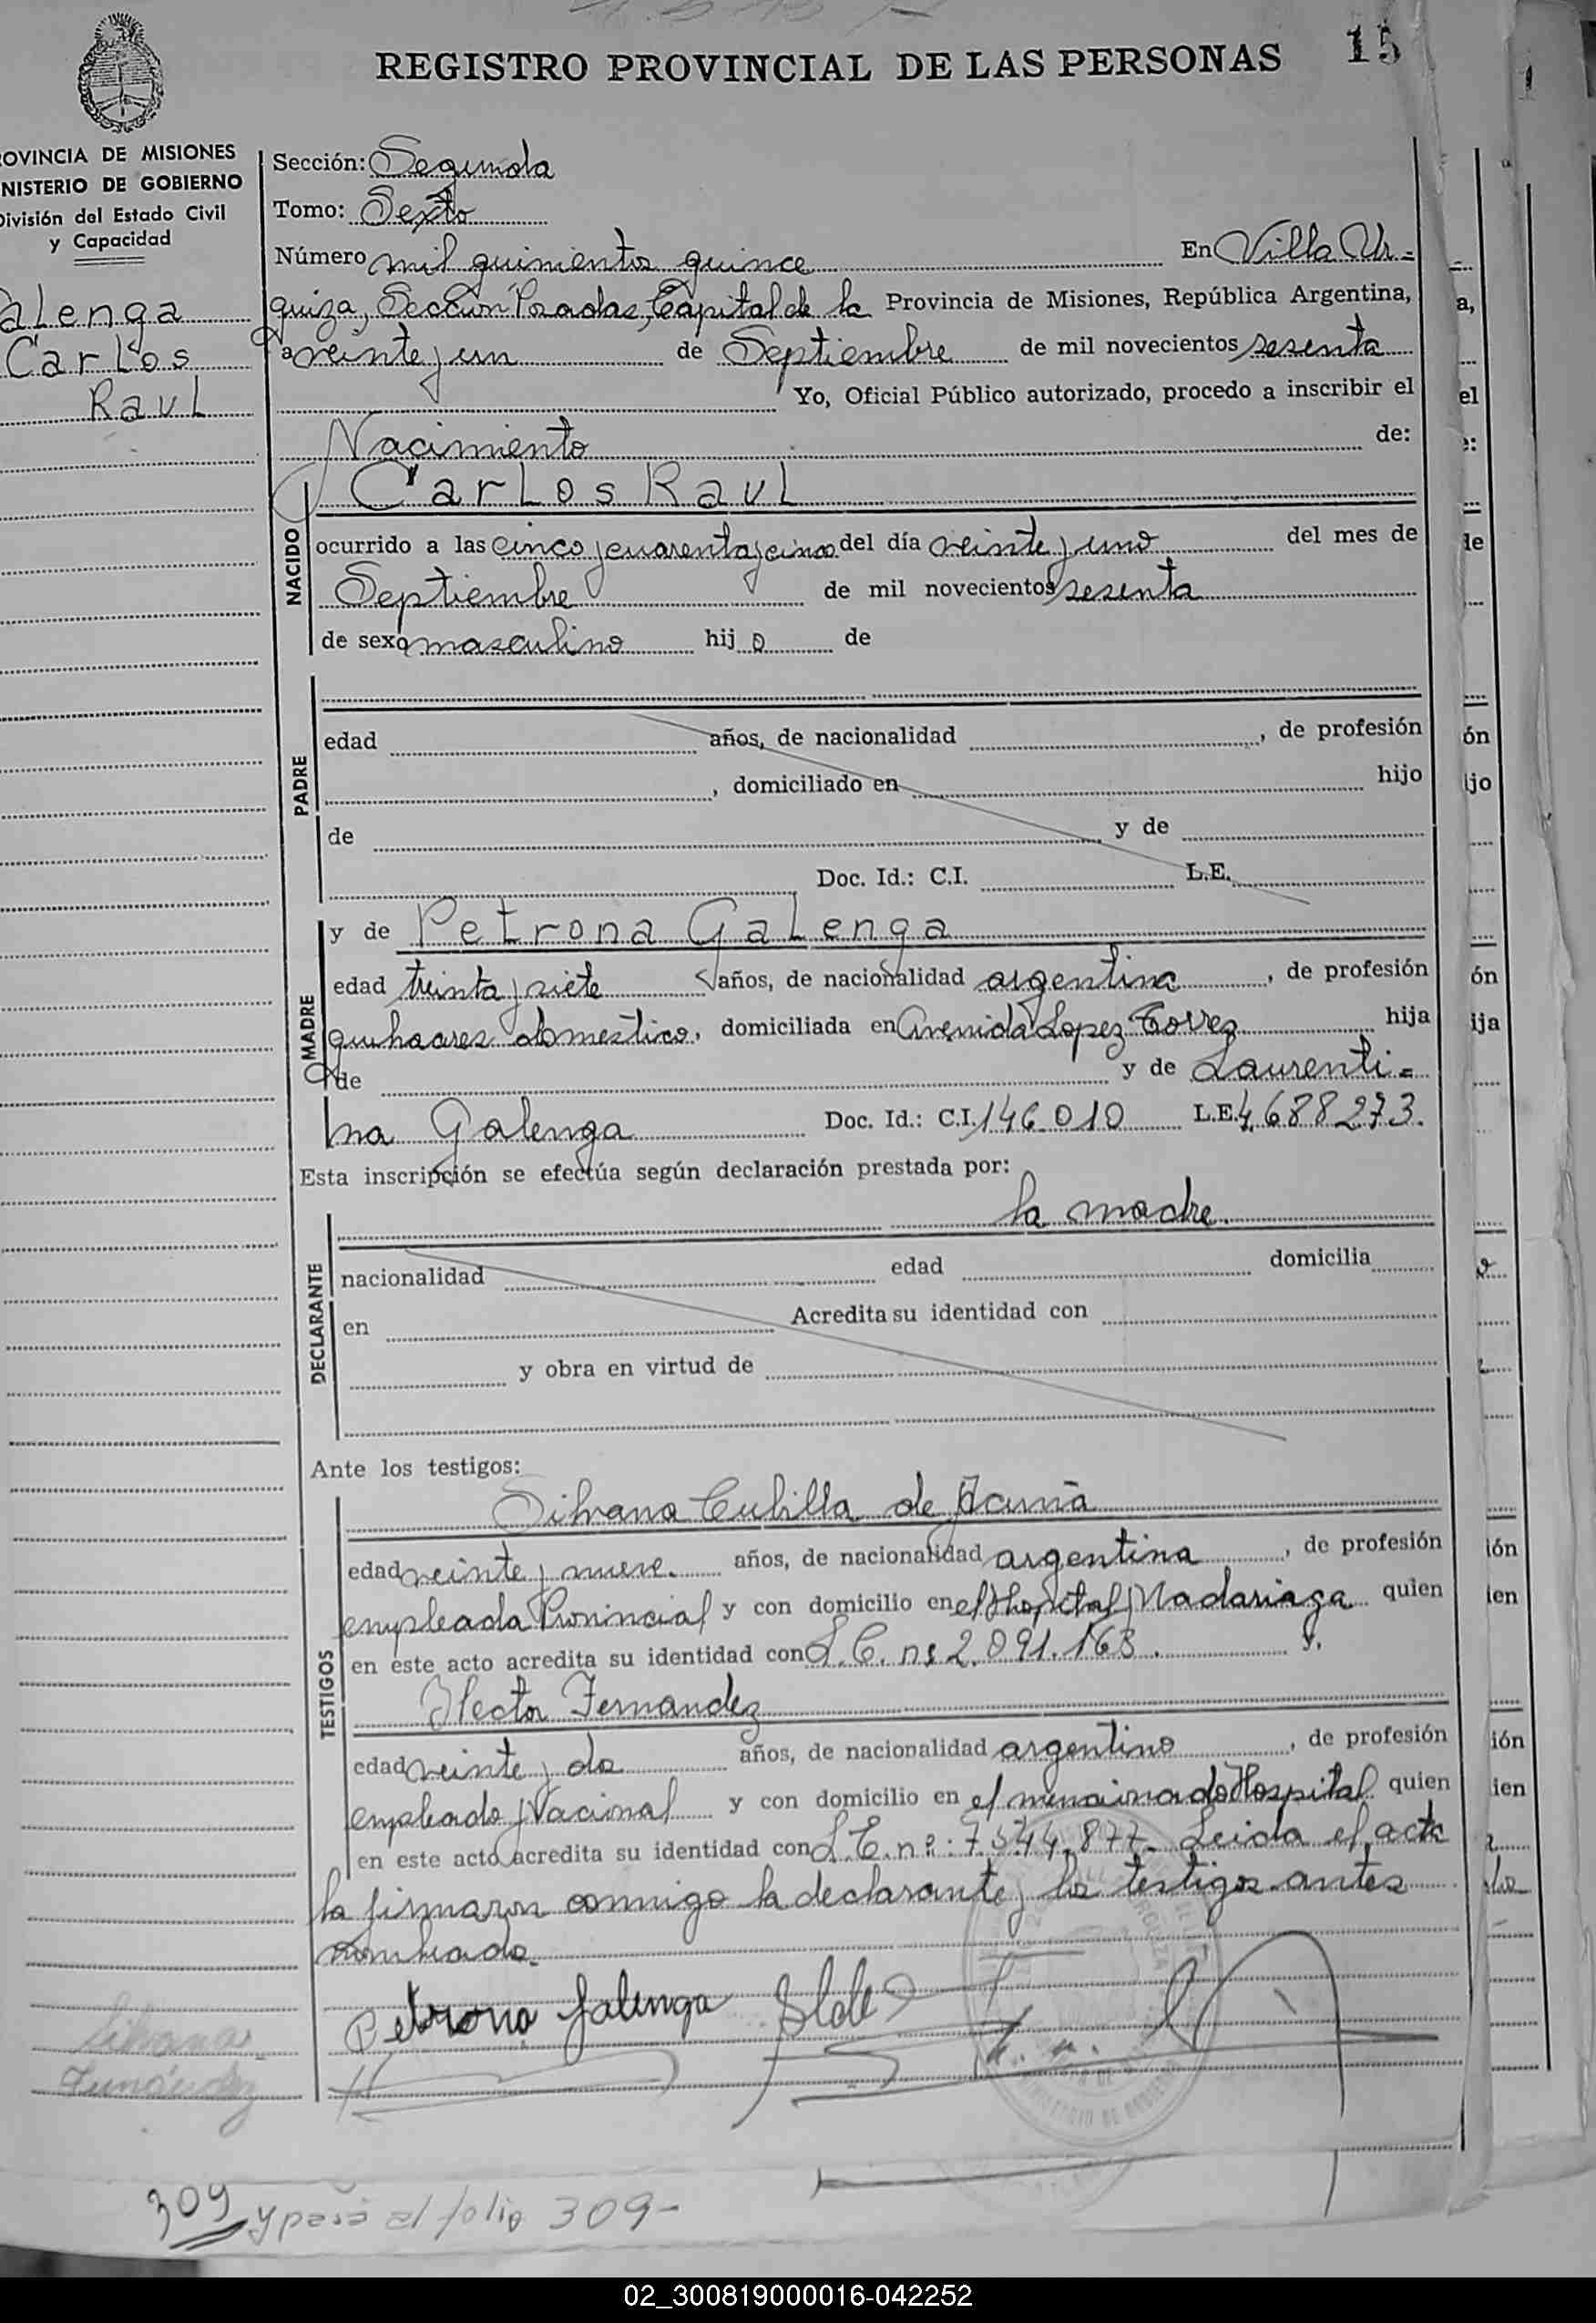 REGISTRO PROVINCIAL DE LAS PERSONAS 15
OVINCIA DE MISIONES
NISTERIO DE GOBIERNO
División del Estado Civil
y Capacidad
alenga
Carlos
Raul
Sección: Segunda
Tomo: Sexto
Número mil quinientos quince En Villa Ur=
quiza, Sección Posadas, Capital de la Provincia de Misiones, República Argentina,
a veinte y un de Septiembre de mil novecientos sesenta
Yo, Oficial Público autorizado, procedo a inscribir el
Nacimiento de:
NACIDO
Carlos Raul
ocurrido a las cinco y cuarenta y cinco del día veinte y uno del mes de
Septiembre de mil novecientos sesenta
de sexo masculino hijo de
PADRE
edad años, de nacionalidad , de profesión
, domiciliado en hijo
de y de
Doc. Id.: C.I. L.E.
MADRE
y de Petrona Galenga
edad treinta y siete años, de nacionalidad argentina , de profesión
quehaceres domestico, domiciliada en Avenida Lopez Torres hija
de y de Laurenti=
na Galenga Doc. Id.: C.I. 146.010 L.E. 4.688.273.
Esta inscripción se efectúa según declaración prestada por:
la madre.
DECLARANTE
nacionalidad edad domicilia
en Acredita su identidad con
y obra en virtud de
Ante los testigos:
TESTIGOS
Silvana Cubilla de Acuña
edad veinte y nueve. años, de nacionalidad argentina , de profesión
empleada Provincial y con domicilio en el Hospital Madariaga quien
en este acto acredita su identidad con L.C. nº 2.091.163. y.
Hector Fernandez
edad veinte y do años, de nacionalidad argentino , de profesión
empleado Nacional y con domicilio en el mencionado Hospital quien
en este acto acredita su identidad con L.E. nº: 7.544.877- Leida el acta
la firmaron conmigo la declarante y los testigos antes
nombrado.
Petrona Galenga
Silvana
Fernández
309 y pasa al folio 309-
02_300819000016-042252